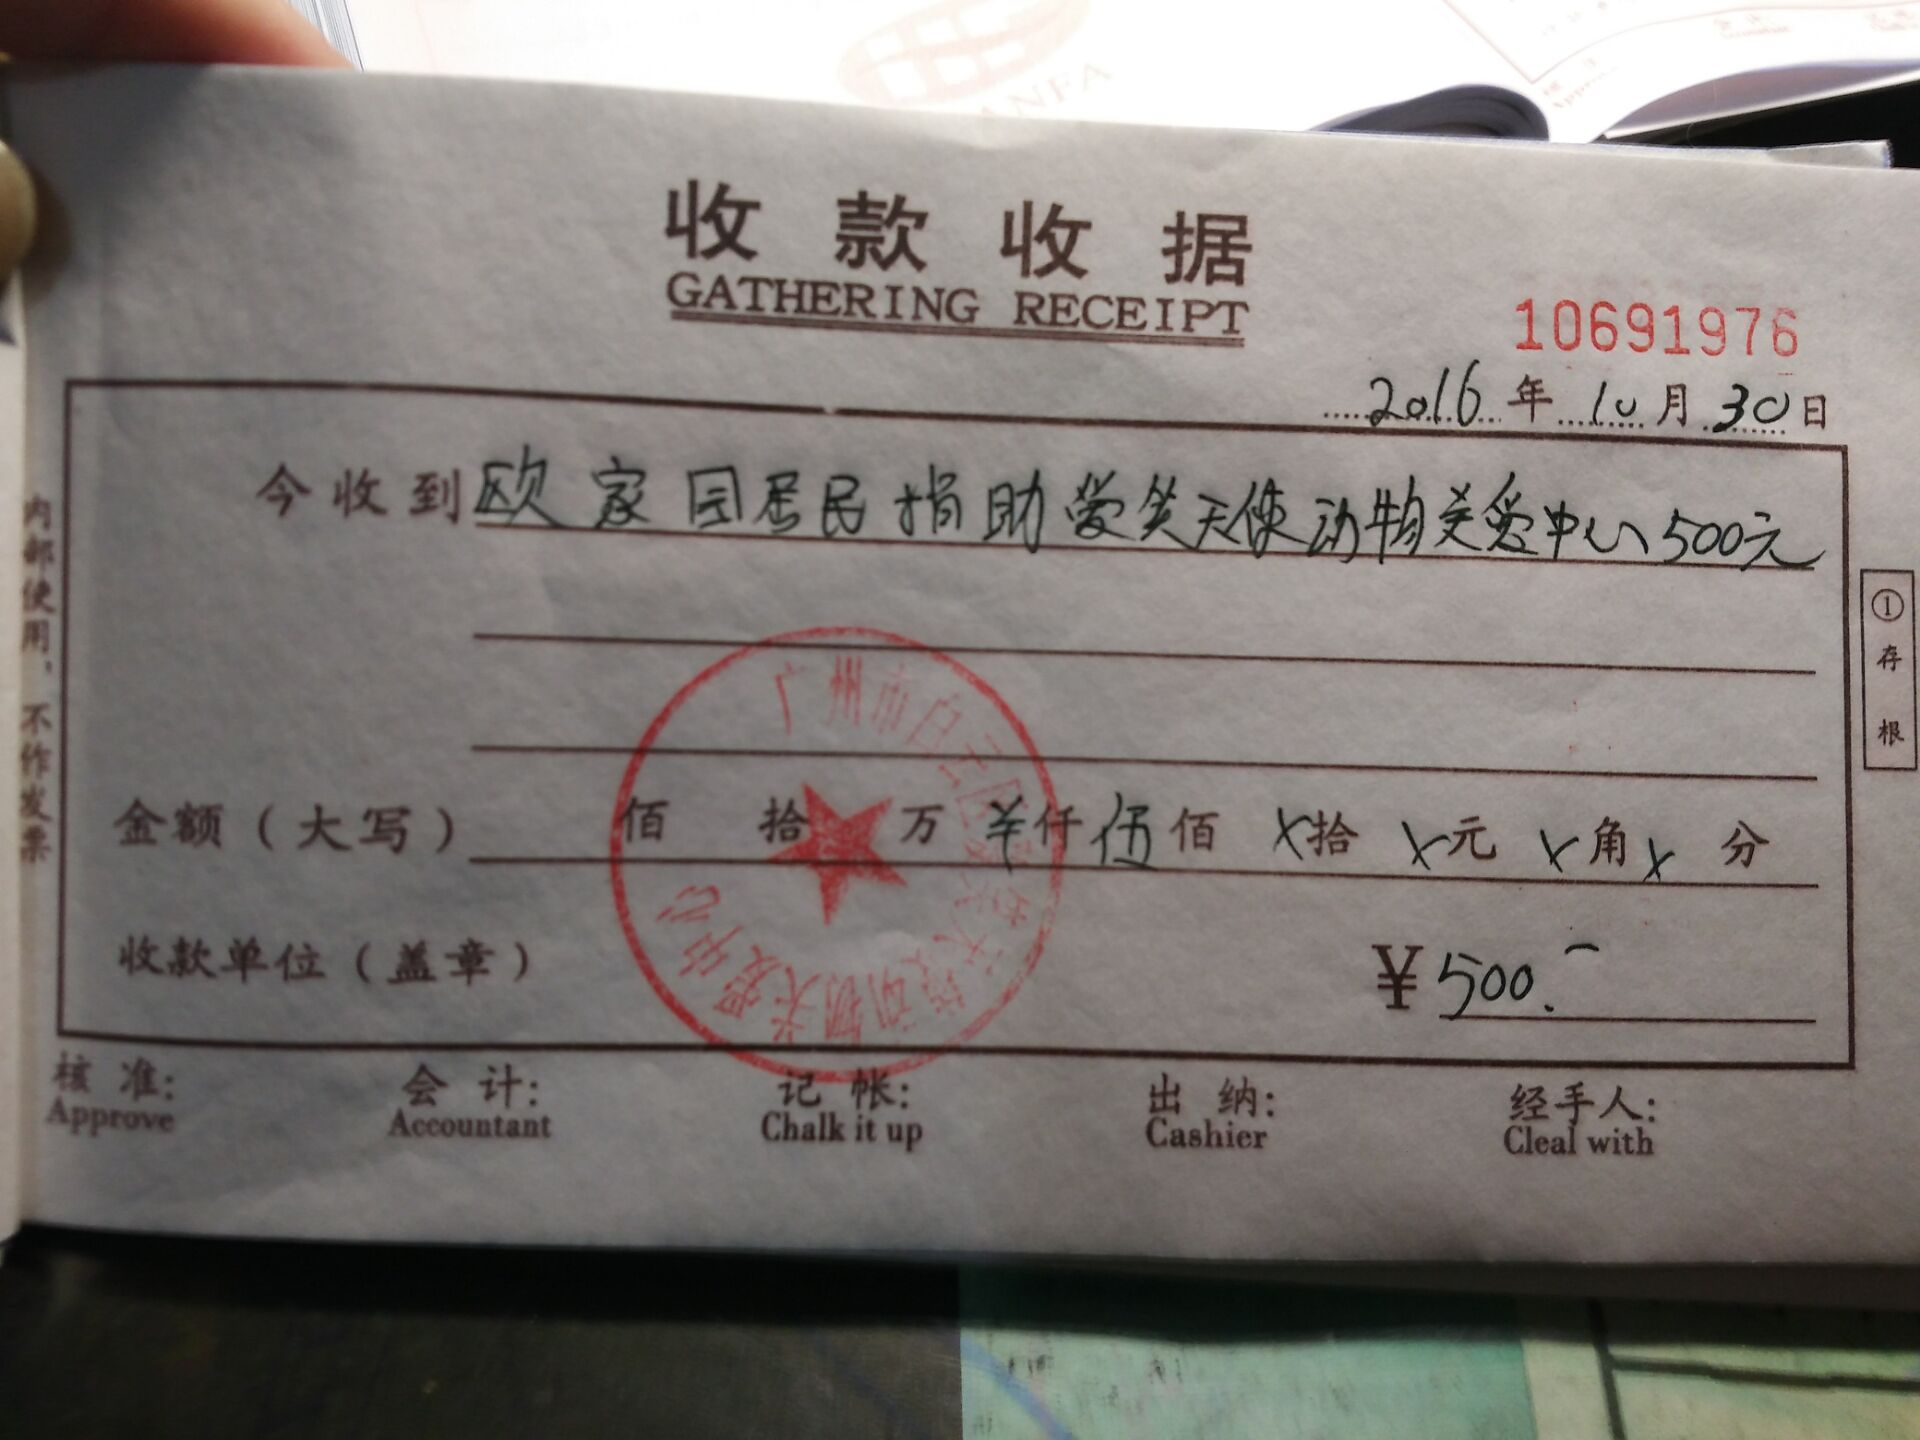 收款收据
GATHERING RECEIPT
10691976
2016年10月30日
今收到欧家园居民捐助爱笑天使动物关爱中心500元
金额（大写） 佰 拾 万 ¥仟 伍佰 X拾 X元 X角 X分
收款单位（盖章） ¥500.
核准: 会计: 记帐: 出纳: 经手人:
Approve Accountant Chalk it up Cashier Cleal with
内部使用，不作发票
①存根
广州市白云区 天使动物关爱中心
ANFA